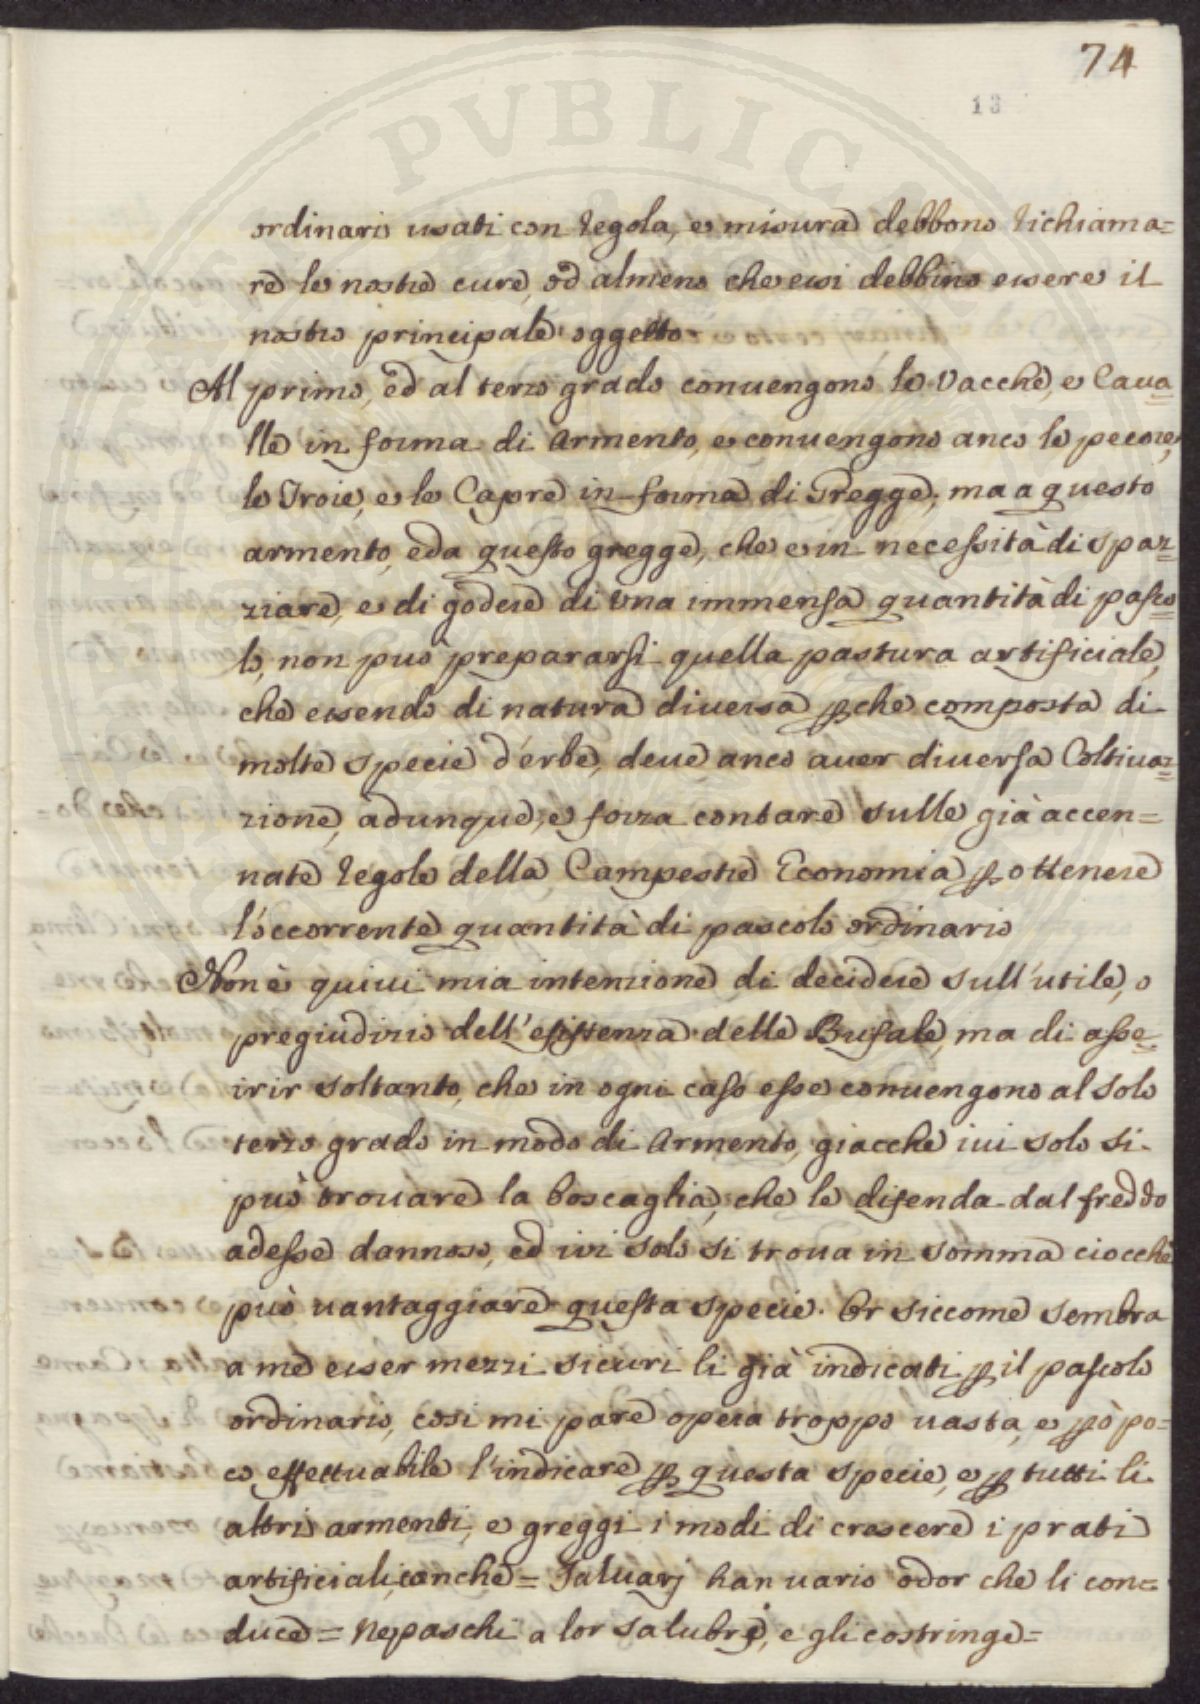 74
13
ordinario usati con regola, e misura debbono richiama=
re le nostre cure, od almeno che essi debbino essere il
nostro principale oggetto
Al primo, ed al terzo grado convengono le Vacche, e Cava=
lle in forma di Armento, e convengono anco le pecore,
le Troie, e le Capre in forma di Gregge; ma a questo
armento, eda questo gregge, che e in necessità di spaz=
ziare, e di godere di Una immensa quantità di pasco=
lo, non può prepararsi quella pastura artificiale,
che essendo di natura diversa pche composta di
molte specie d'erbe, deve anco aver diversa Coltivaz=
zione, adunque, e forza contare sulle già accen=
nate regole della Campestre Economia p ottenere
l'occorrente quantità di pascolo ordinario
Non è quivi mia intenzione di decidere sull'utile, o
pregiudizio dell'esistenza delle Bufale, ma di asse=
rir soltanto, che in ogni caso esse convengono al solo
terzo grado in modo di Armento, giacche ivi solo si
può trovare la boscaglia, che le difenda dal freddo
adesse dannoso, ed ivi solo si trova in somma ciocche
può vantaggiare questa specie. Or siccome sembra
a me esser mezzi sicuri li già indicati p il pascolo
ordinario, cosi mi pare opera troppo vasta, e pò po=
co effettuabile l'indicare p questa specie, e p tutti li
altri armenti, e greggi i modi di crescere i prati
artificiali, anche = Saluarj han vario odor che li con=
duce = Ne paschi a lor salubri, e gli costringe =
PVBLICA